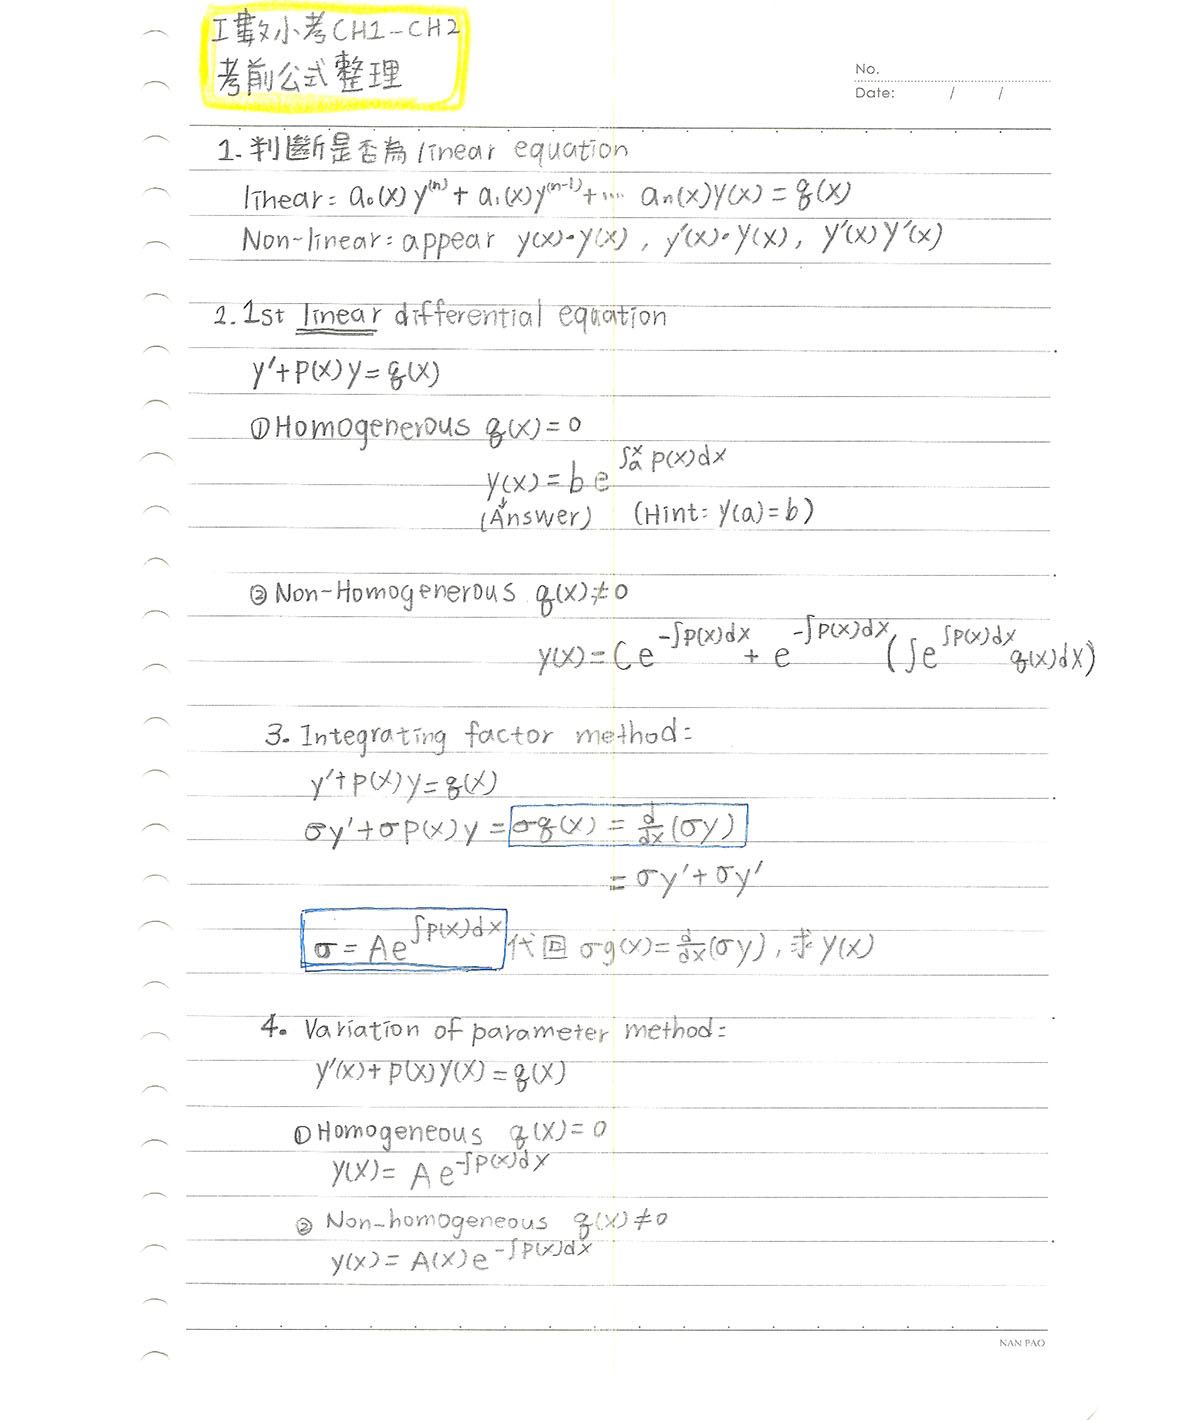 工數小考CH1-CH2
考前公式整理
No.
Date: / /
1.判斷是否為linear equation
linear: a₀(x)y⁽ⁿ⁾+a₁(x)y⁽ⁿ⁻¹⁾+… aₙ(x)y(x)=q(x)
Non-linear: appear y(x)·y(x), y'(x)·y(x), y'(x)y'(x)
2.1st linear differential equation
y'+p(x)y=q(x)
①Homogenerous q(x)=0
y(x)=be^∫ₐˣ p(x)dx
(Answer) (Hint: y(a)=b)
②Non-Homogenerous q(x)≠0
y(x)=Ce^-∫p(x)dx + e^-∫p(x)dx (∫e^∫p(x)dx q(x)dx)
3. Integrating factor method:
y'+p(x)y=q(x)
σy'+σp(x)y=σq(x)=d/dx(σy)
=σy'+σy'
σ=Ae^∫p(x)dx 代回 σg(x)=d/dx(σy), 求y(x)
4. Variation of parameter method:
y'(x)+p(x)y(x)=q(x)
①Homogeneous q(x)=0
y(x)=Ae^-∫p(x)dx
②Non-homogeneous q(x)≠0
y(x)=A(x)e^-∫p(x)dx
NAN PAO